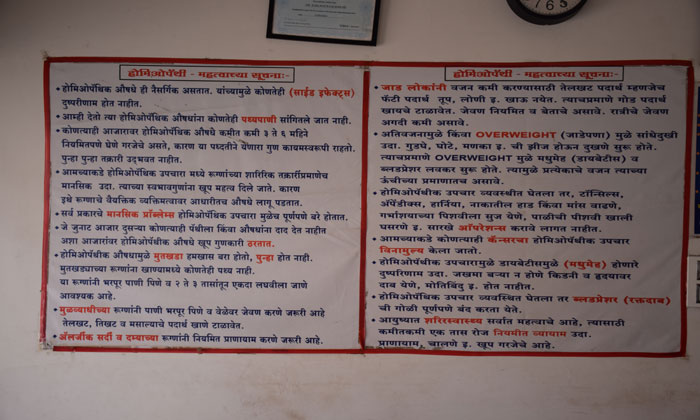 होमिओपॅथी - महत्वाच्या सूचनाः-
• होमिओपॅथिक औषधे ही नैसर्गिक असतात. यांच्यामुळे कोणतेही (साईड इफेक्ट्स)
दुष्परीणाम होत नाहीत.
• आम्ही देतो त्या होमिओपॅथिक औषधांना कोणतेही पथ्यपाणी सांगितले जात नाही.
• कोणत्याही आजारावर होमिओपॅथिक औषधे कमीत कमी ३ ते ६ महिने
नियमितपणे घेणे गरजेचे असते, कारण या पध्दतीने येणारा गुण कायमस्वरूपी राहतो.
पुन्हा पुन्हा तक्रारी उद्भवत नाहीत.
• आमच्याकडे होमिओपॅथिक उपचारा मध्ये रूग्णांच्या शारिरिक तक्रारींप्रमाणेच
मानसिक उदा. त्याच्या स्वभावगुणांना खूप महत्व दिले जाते. कारण
इथे रूग्णाचे वैयक्तिक व्यक्तिमत्वावर आधारीतच औषधे लागू पडतात.
• सर्व प्रकारचे मानसिक प्रॉब्लेम्स होमिओपॅथिक उपचारा मुळेच पूर्णपणे बरे होतात.
• जे जुनाट आजार दुसऱ्या कोणत्याही पॅथीला किंवा औषधांना दाद देत नाहीत
अशा आजारांवर होमिओपॅथीक औषधे खूप गुणकारी ठरतात.
• होमिओपॅथीक औषधामुळे मुतखडा हमखास बरा होतो, पुन्हा होत नाही.
मुतखड्याच्या रूग्णांना खाण्यामध्ये कोणतेही पथ्य नाही.
या रूग्णांनी भरपूर पाणी पिणे व २ ते ३ तासांतून एकदा लघवीला जाणे
आवश्यक आहे.
• मुळव्याधीच्या रूग्णांनी पाणी भरपूर पिणे व वेळेवर जेवण करणे जरूरी आहे
तेलखट, तिखट व मसाल्याचे पदार्थ खाणे टाळावेत.
• ॲलर्जीक सर्दी व दम्याच्या रूग्णांनी नियमित प्राणायाम करणे जरूरी आहे.
होमिओपॅथी - महत्वाच्या सूचनाः-
• जाड लोकांनी वजन कमी करण्यासाठी तेलखट पदार्थ म्हणजेच
फॅटी पदार्थ तूप, लोणी इ. खाऊ नयेत. त्याचप्रमाणे गोड पदार्थ
खायचे टाळावेत. जेवण नियमित व बेताचे असावे. रात्रीचे जेवण
अगदी कमी असावे.
• अतिवजनामुळे किंवा OVERWEIGHT (जाडेपणा) मुळे सांधेदुखी
उदा. गुडघे, घोटे, मणका इ. ची झीज होऊन दुखणे सुरू होते.
त्याचप्रमाणे OVERWEIGHT मुळे मधुमेह (डायबेटीस) व
ब्लडप्रेशर लवकर सुरू होते. त्यामुळे प्रत्येकाचे वजन त्याच्या
ऊंचीच्या प्रमाणातच असावे.
• होमिओपॅथीक उपचार व्यवस्थीत घेतला तर, टॉन्सिल्स,
ॲपेंडीक्स, हार्निया, नाकातील हाड किंवा मांस वाढणे,
गर्भाशयाच्या पिशवीला सुज येणे, पाळीची पीशवी खाली
घसरणे इ. सारखे ऑपरेशन्स करावे लागत नाहीत.
• आमच्याकडे कोणत्याही कॅन्सरचा होमिओपॅथीक उपचार
विनामुल्य केला जातो.
• होमिओपॅथीक उपचारामुळे डायबेटीसमुळे (मधुमेह) होणारे
दुष्परिणाम उदा. जखमा बऱ्या न होणे किडनी व हृदयावर
दाब येणे, मोतिबिंदु इ. होत नाहीत.
• होमिओपॅथिक उपचार व्यवस्थित घेतला तर ब्लडप्रेशर (रक्तदाब)
ची गोळी पूर्णपणे बंद करता येते.
• आयुष्यात शरिरस्वास्थ्य सर्वात महत्वाचे आहे, त्यासाठी
कमीतकमी एक तास रोज नियमीत व्यायाम उदा.
प्राणायाम, चालणे इ. खूप गरजेचे आहे.